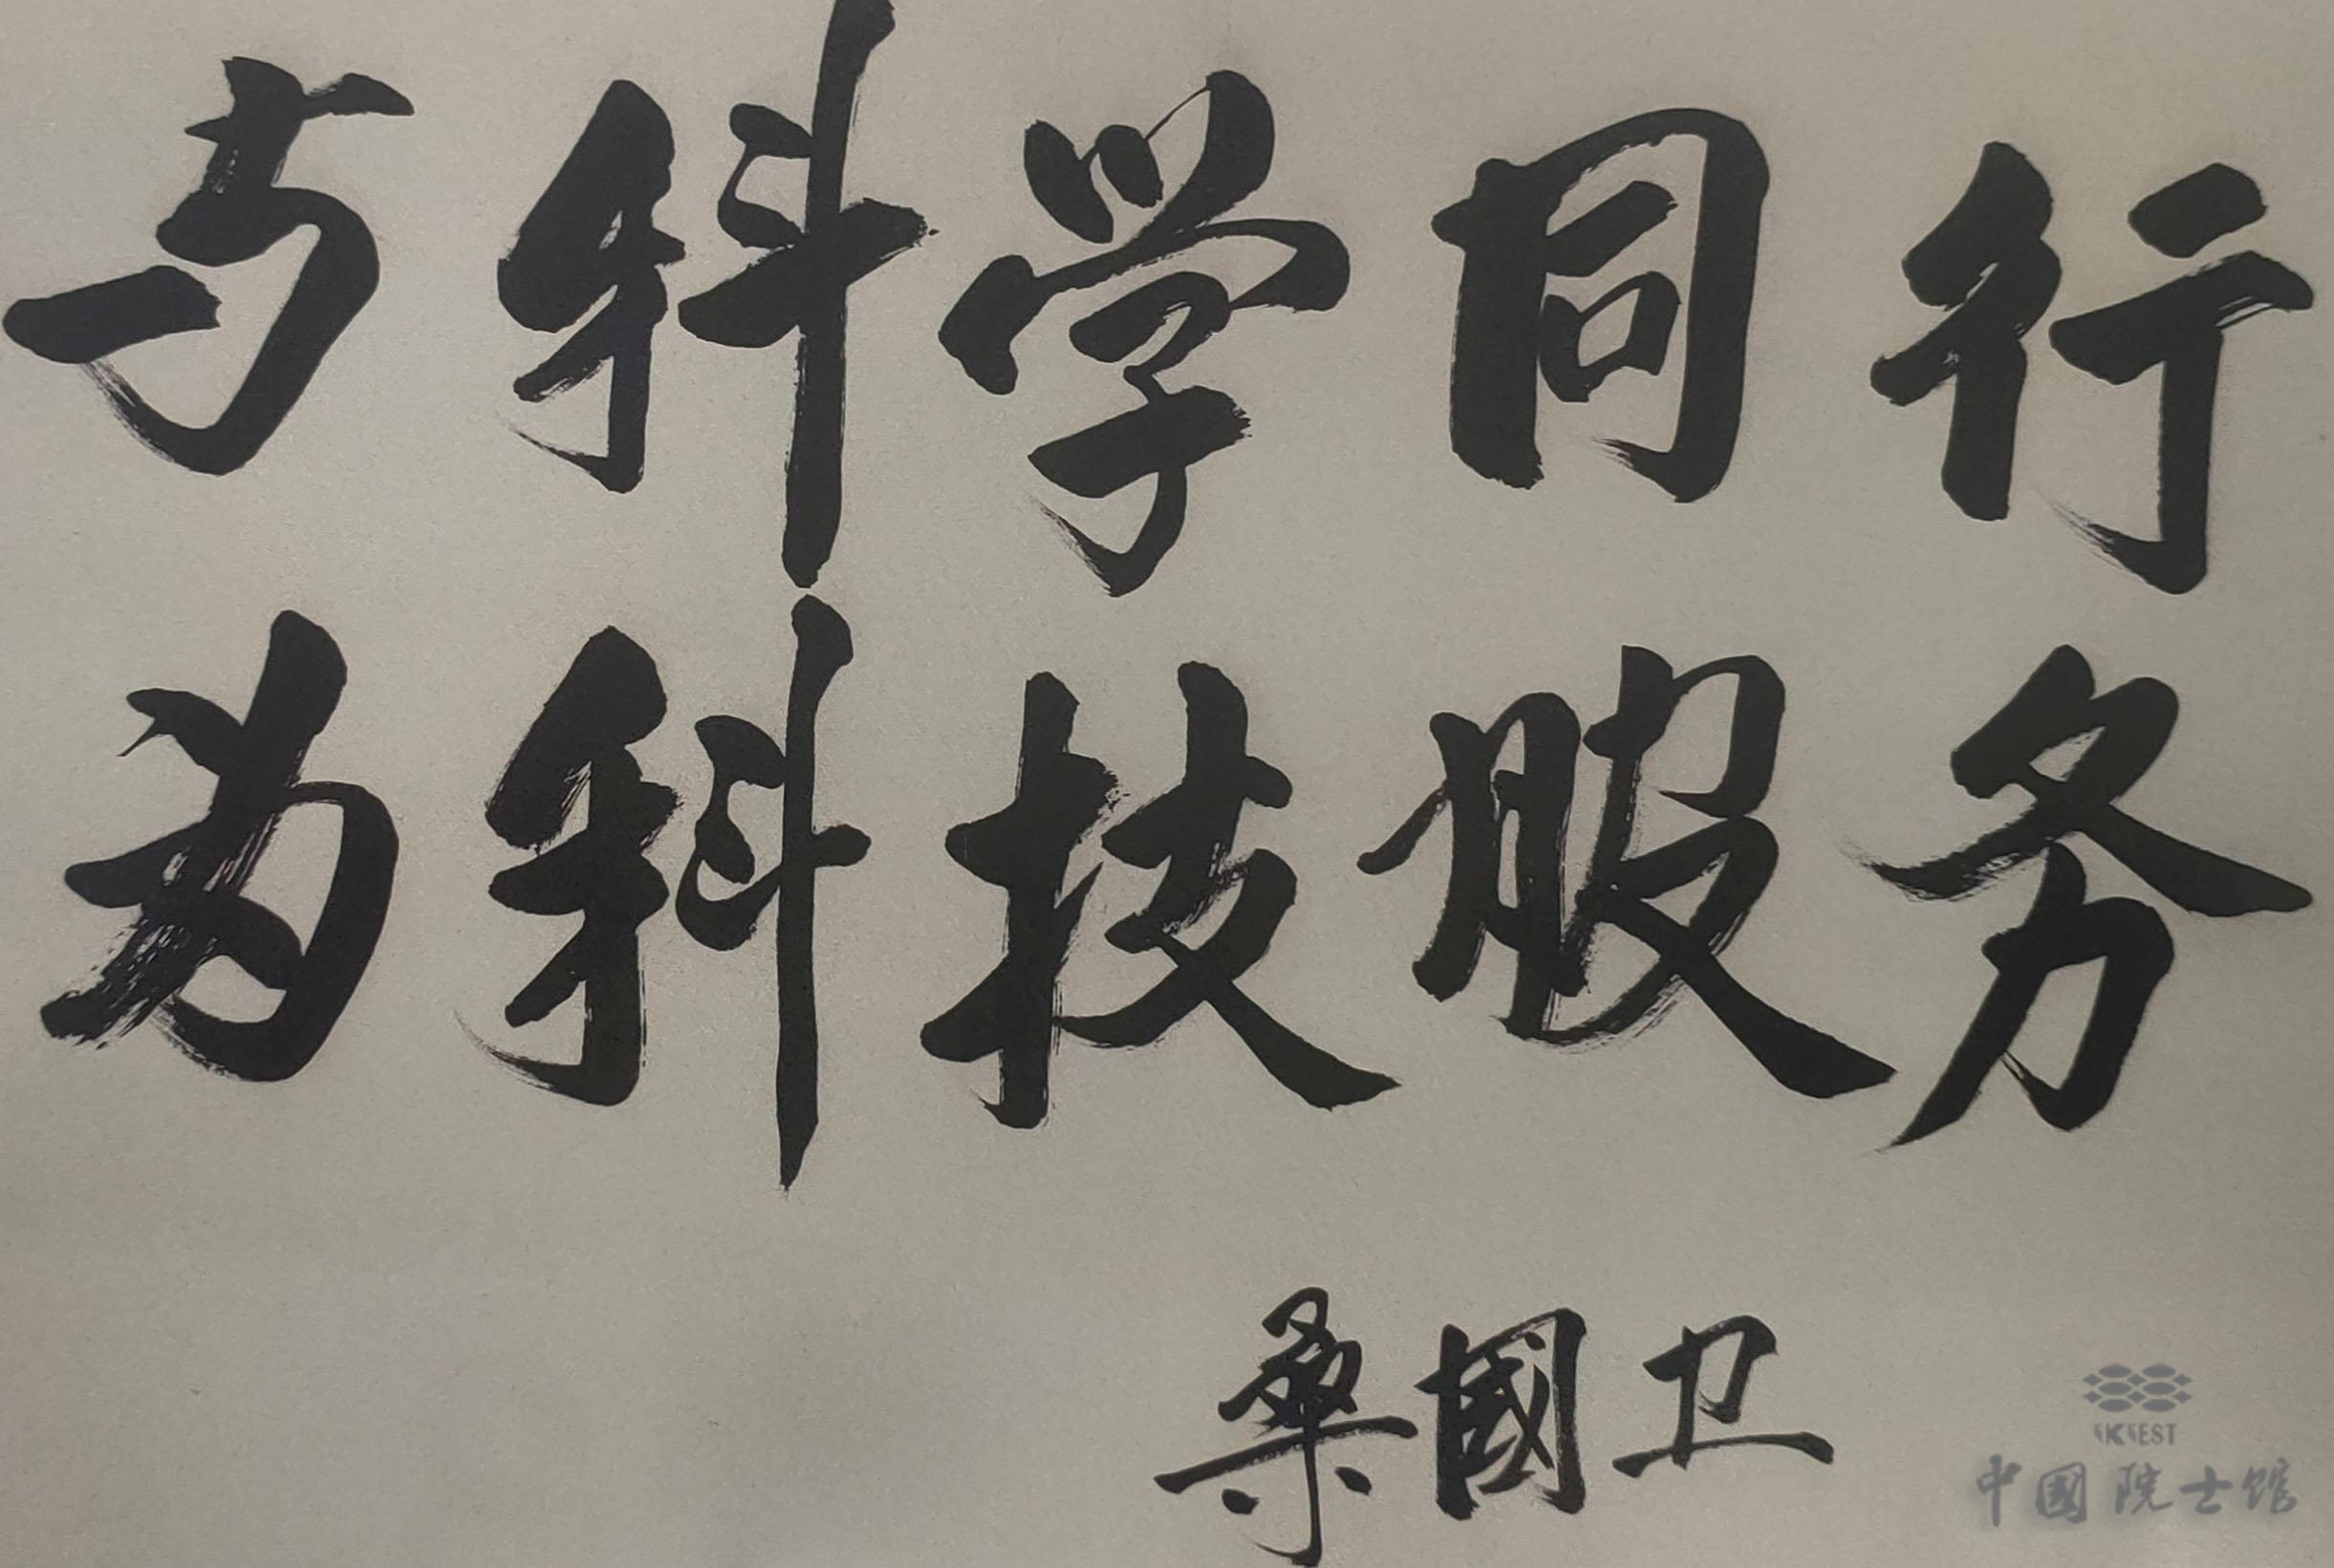 与科学同行
为科技服务
桑國卫
IKIEST
中國院士馆